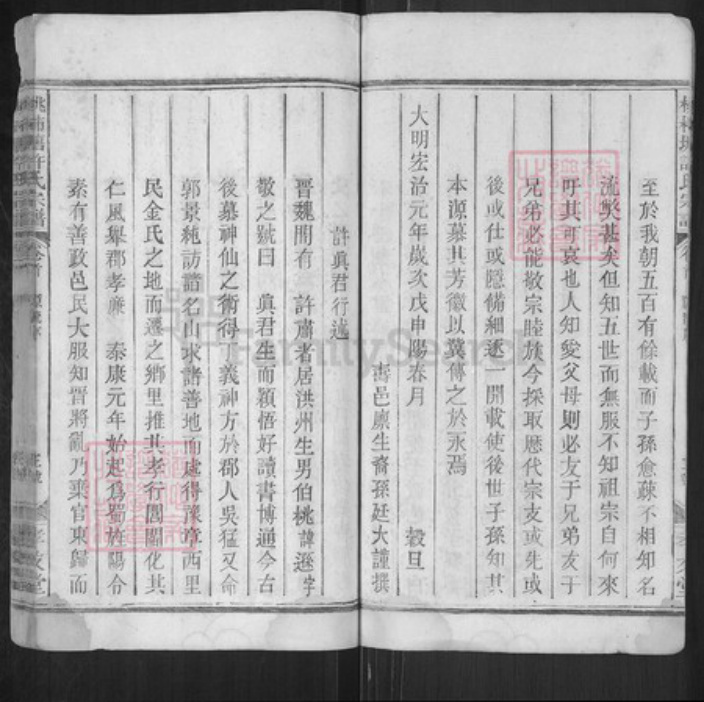 至於我朝五百有餘載而子孫愈疎不相知名
流獘甚矣但知五世而無服不知祖宗自何來
吁其可哀也人知愛父母則必友于兄弟友于
兄弟必能敬宗睦族今採取歴代宗支或先或
後或仕或隱備細逐一開載使後世子孫知其
本源慕其芳徽以冀傳之於永焉
大明宏治元年歲次戊申陽春月 穀旦
壽邑廪生裔孫廷大謹撰
許眞君行述
晋魏間有 許肅者居洪州生男伯桃諱遜字
敬之號曰 眞君生而穎悟好讀書博通今古
後慕神仙之術得丁義神方於郡人吳猛又命
郭景純訪諸名山求諸善地而處得豫章西里
民金氏之地而遷之鄉里推其孝行閭閻化其
仁風舉郡孝廉 泰康元年始起爲蜀旌陽令
素有善政邑民大服知晋將亂乃棄官東歸而
許氏宗譜
孝友堂
FamilySearch